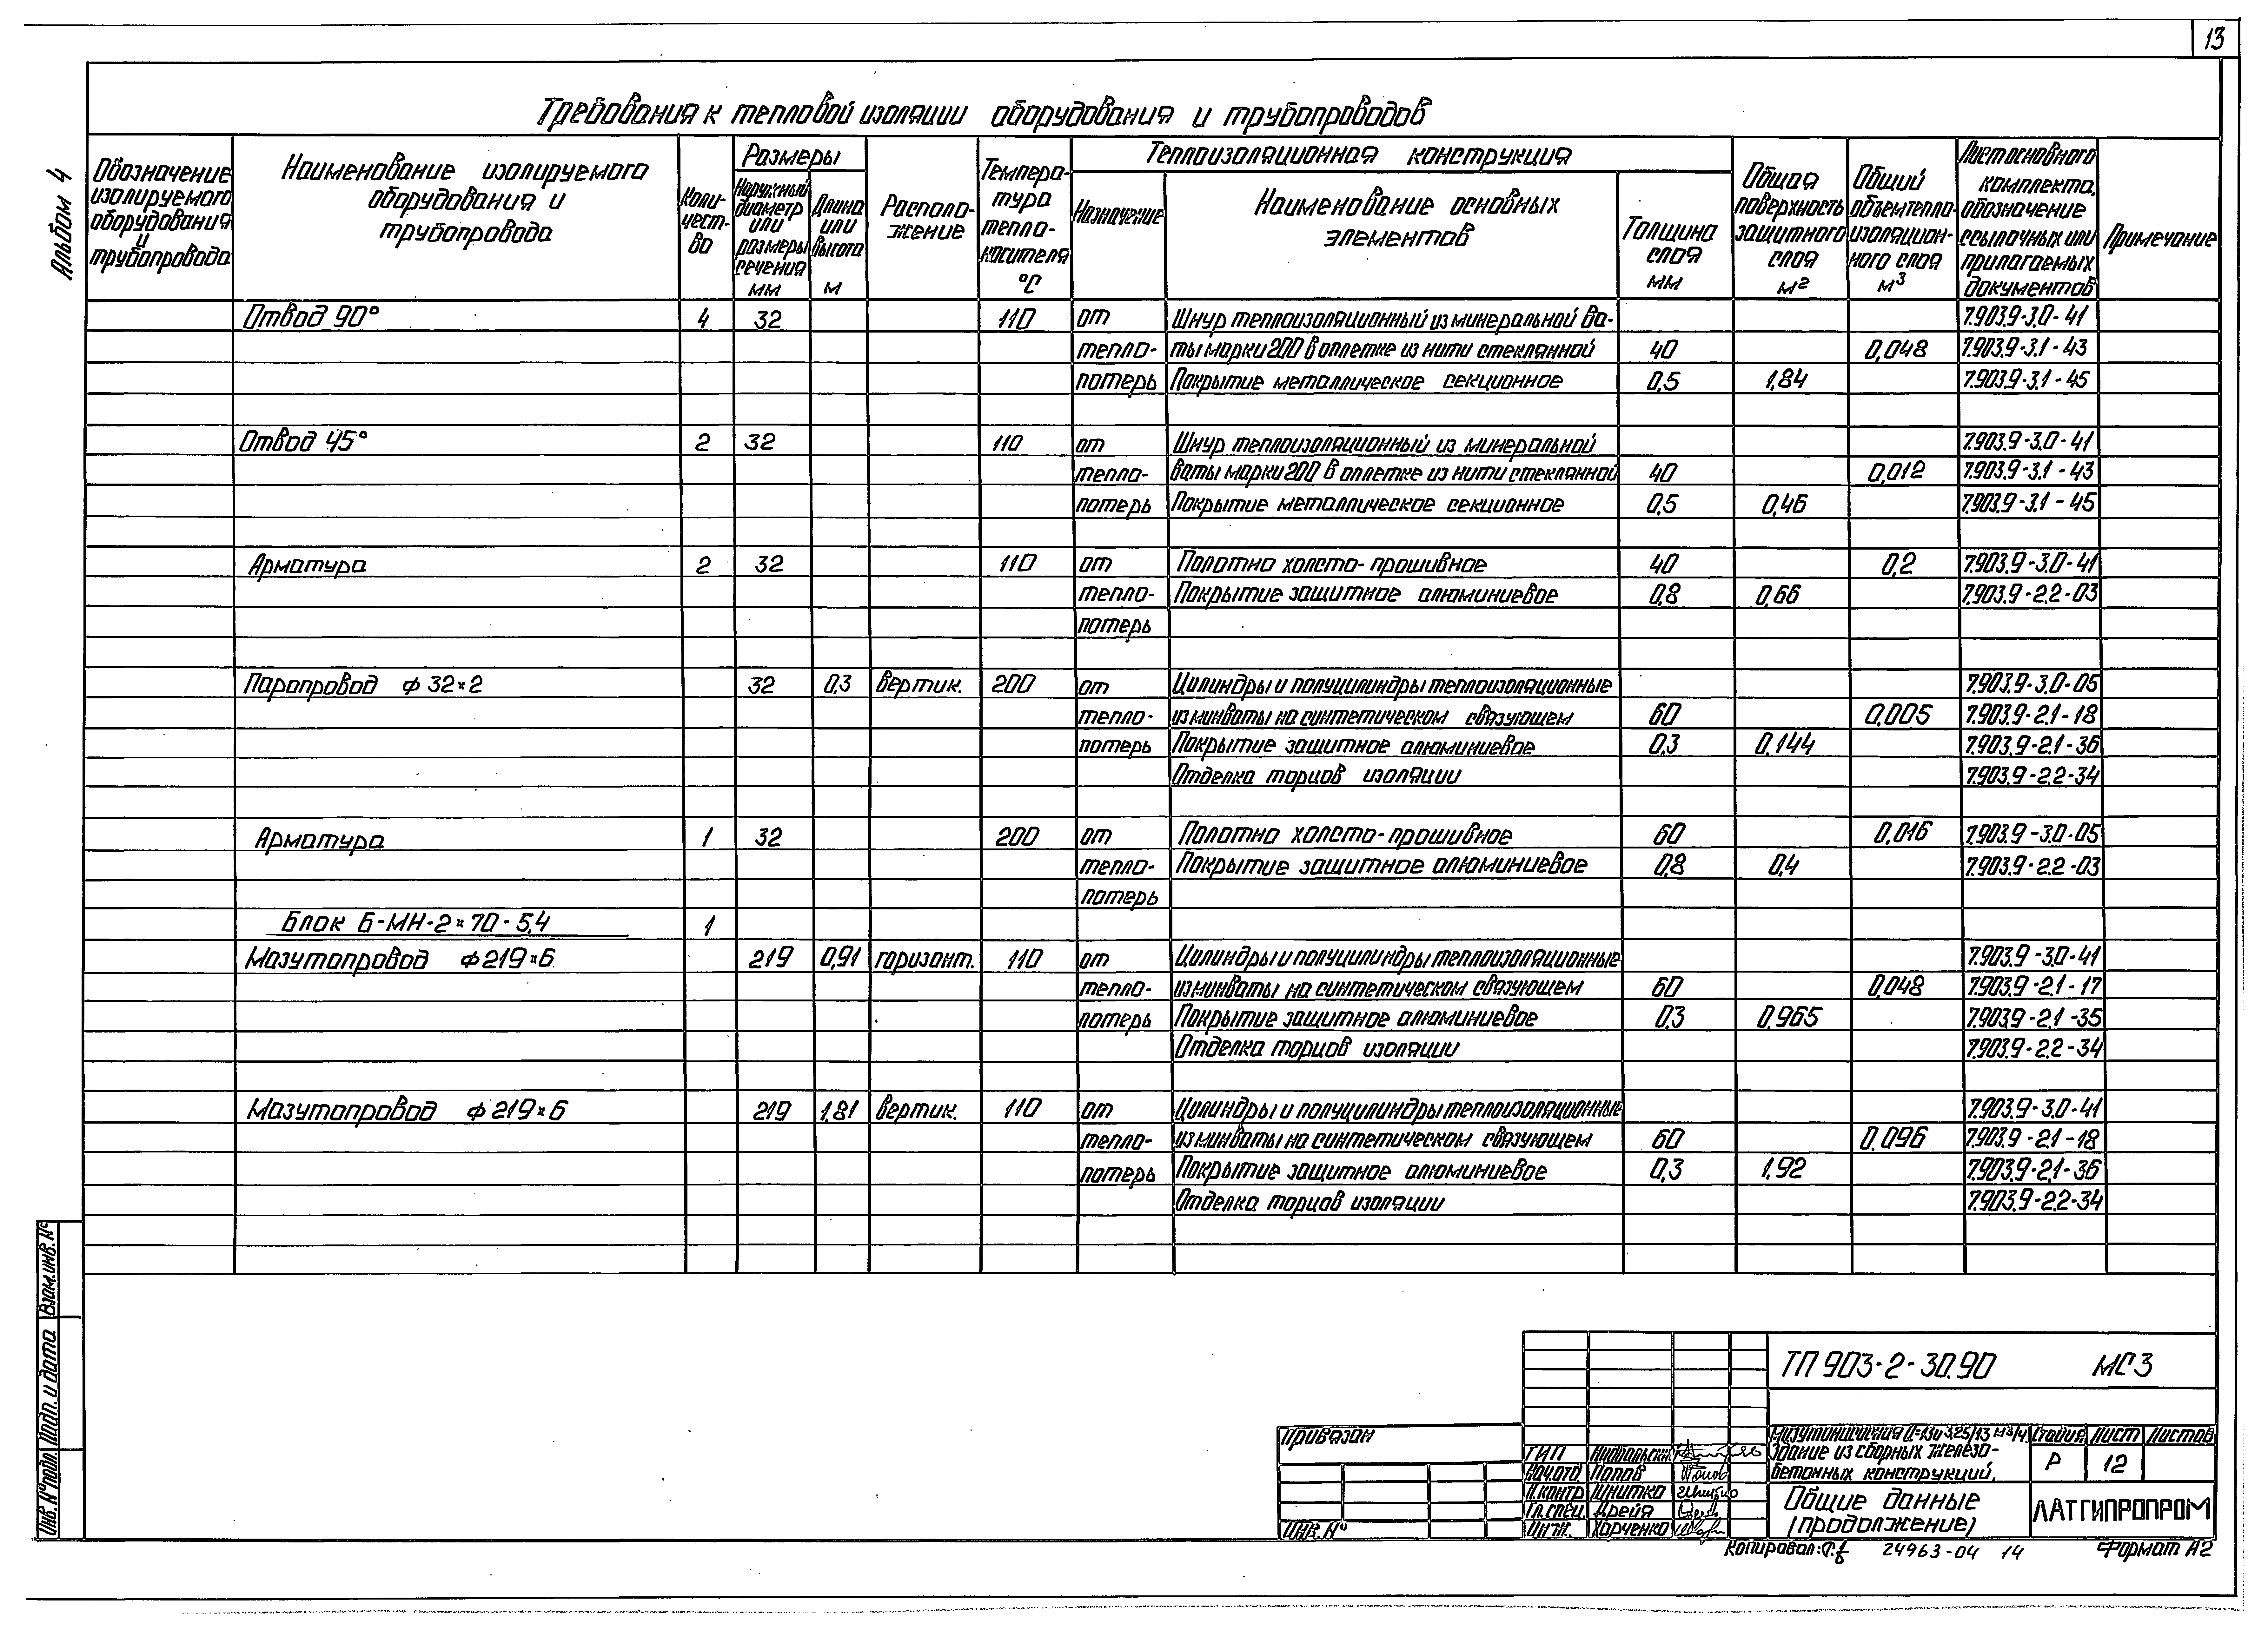 13
Альбом 4
Требования к тепловой изоляции оборудования и трубопроводов
Обозначение изолируемого оборудования и трубопровода
Наименование изолируемого оборудования и трубопровода
Количест-во
Размеры
Наружный диаметр или размеры сечения мм
Длина или высота м
Располо-жение
Темпера-тура тепло-носителя °С
Теплоизоляционная конструкция
Назначение
Наименование основных элементов
Толщина слоя мм
Общая поверхность защитного слоя м²
Общий объем тепло-изоляцион-ного слоя м³
Лист основного комплекта, обозначение ссылочных или прилагаемых документов
Примечание
Отвод 90° 4 32 110 от Шнур теплоизоляционный из минеральной ва- 7.903.9-3.0-41
тепло- ты марки 200 в оплетке из нити стеклянной 40 0,048 7.903.9-3.1-43
потерь Покрытие металлическое секционное 0,5 1,84 7.903.9-3.1-45
Отвод 45° 2 32 110 от Шнур теплоизоляционный из минеральной 7.903.9-3.0-41
тепло- ваты марки 200 в оплетке из нити стеклянной 40 0,012 7.903.9-3.1-43
потерь Покрытие металлическое секционное 0,5 0,46 7.903.9-3.1-45
Арматура 2 32 110 от Полотно холсто-прошивное 40 0,2 7.903.9-3.0-41
тепло- Покрытие защитное алюминиевое 0,8 0,66 7.903.9-2.2-03
потерь
Паропровод ф 32×2 32 0,3 вертик. 200 от Цилиндры и полуцилиндры теплоизоляционные 7.903.9-3.0-05
тепло- из минваты на синтетическом связующем 60 0,005 7.903.9-2.1-18
потерь Покрытие защитное алюминиевое 0,3 0,144 7.903.9-2.1-36
Отделка торцов изоляции 7.903.9-2.2-34
Арматура 1 32 200 от Полотно холсто-прошивное 60 0,016 7.903.9-3.0-05
тепло- Покрытие защитное алюминиевое 0,8 0,4 7.903.9-2.2-03
потерь
Блок Б-МН-2×70-5,4 1
Мазутопровод ф 219×6 219 0,91 горизонт. 110 от Цилиндры и полуцилиндры теплоизоляционные 7.903.9-3.0-41
тепло- из минваты на синтетическом связующем 60 0,048 7.903.9-2.1-17
потерь Покрытие защитное алюминиевое 0,3 0,965 7.903.9-2.1-35
Отделка торцов изоляции 7.903.9-2.2-34
Мазутопровод ф 219×6 219 1,81 вертик. 110 от Цилиндры и полуцилиндры теплоизоляционные 7.903.9-3.0-41
тепло- из минваты на синтетическом связующем 60 0,096 7.903.9-2.1-18
потерь Покрытие защитное алюминиевое 0,3 1,92 7.903.9-2.1-36
Отделка торцов изоляции 7.903.9-2.2-34
Взам. инв. №
Подп. и дата
Инв. № подл.
Привязан
Инв. №
ТП 903-2-30.90 МС3
ГИП
Нач.отд. Попов
Н.контр Шнитко
Гл.спец. Дрейя
Инж. Харченко
Здание из сборных железо-
бетонных конструкций.
Стадия Лист Листов
Р 12
Общие данные
(продолжение)
ЛАТГИПРОПРОМ
Копировал:
24963-04 14
Формат А2